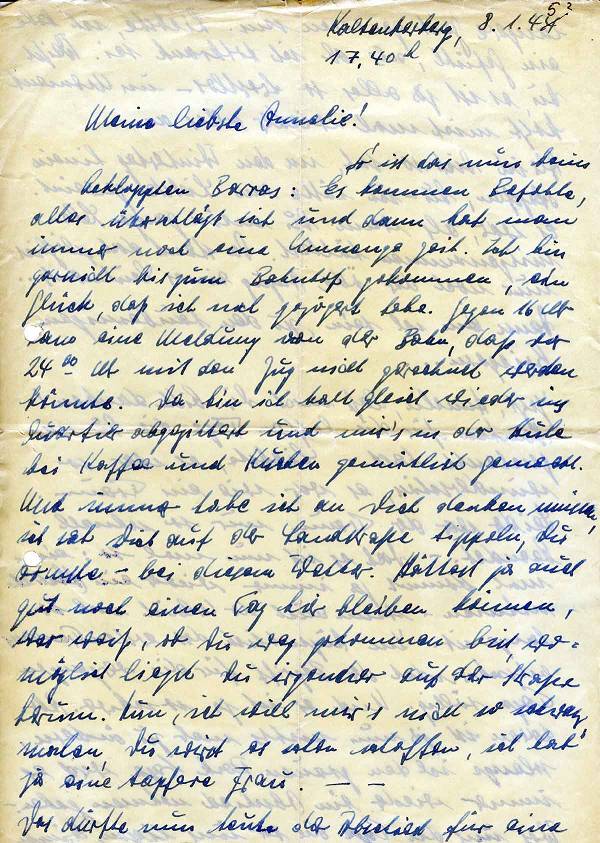 Kaltenherberg, 8.1.45
17,40 h
Meine liebste Annelie!
So ist das nun beim
bekloppten Barras: Es kommen Befehle,
alles überschlägt sich und dann hat man
immer noch eine Unmenge Zeit. Ich bin
garnicht bis zum Bahnhof gekommen, ein
Glück, daß ich noch gezögert habe. Gegen 16 Uhr
kam eine Meldung von der Bahn, daß vor
24 00 Uhr mit dem Zug nicht gerechnet werden
könnte. Da bin ich halt gleich wieder ins
Quartier abgezittert und mir's in der Bude
bei Kaffee und Kuchen gemütlich gemacht.
Und immer habe ich an Dich denken müssen,
ich sah Dich auf der Landstraße tippeln, Du
ärmste - bei diesem Wetter. Hättest ja auch
gut noch einen Tag hier bleiben können,
wer weiß, ob Du weg gekommen bist, wo=
möglich liegst Du irgendwo auf der Straße
herum. Nun, ich will mir's nicht so schwarz
malen, Du wirst es schon schaffen, ich hab'
ja eine tapfere Frau. — —
Das dürfte nun heute der Abschied für eine